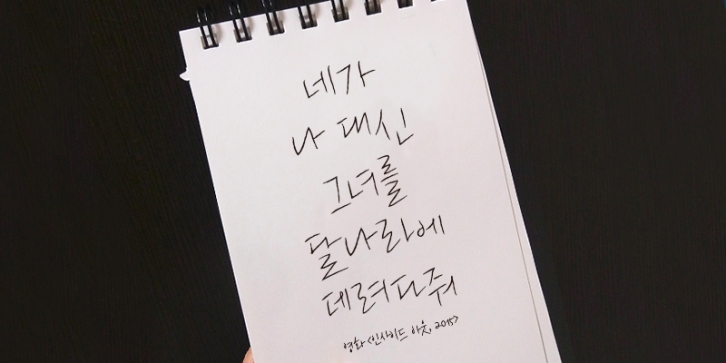 네가
나 대신
그녀를
달나라에
데려다줘
영화 <인사이드 아웃, 2015>